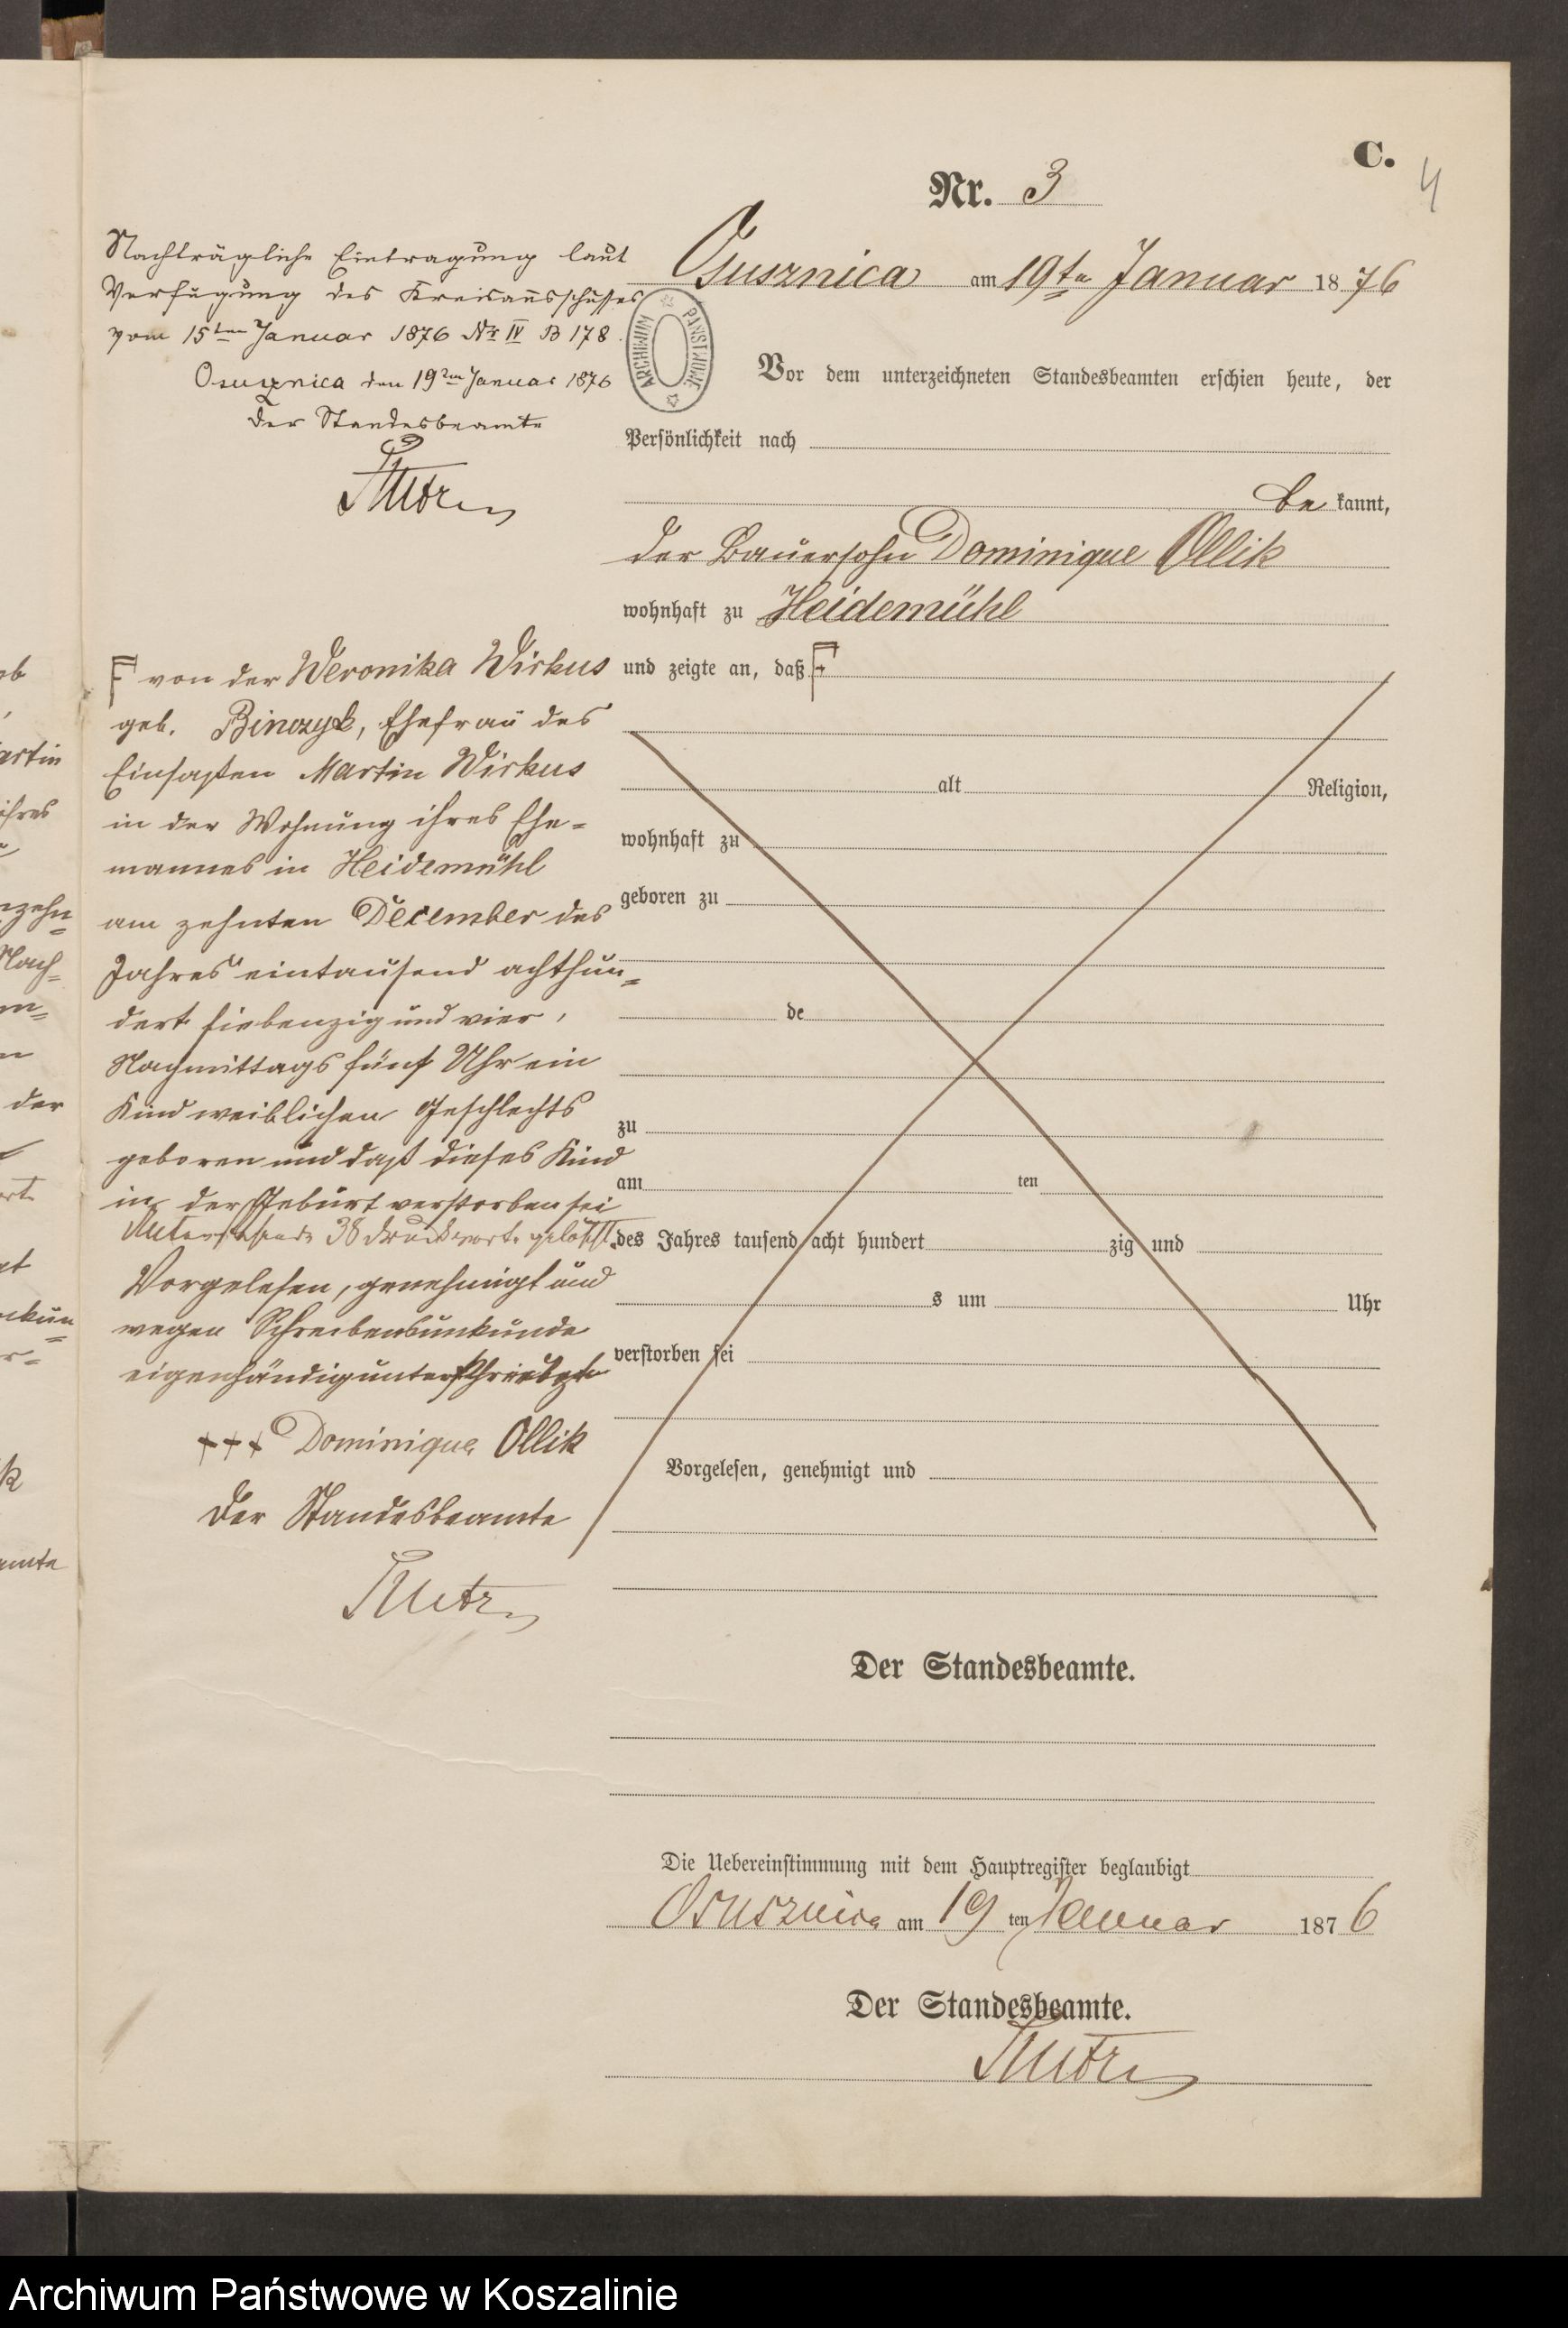 C.
4
Nr. 3
Osusznica am 19ten Januar 1876
Nachträgliche Eintragung laut
Verfügung des Kreisausschusses
vom 15ten Januar 1876 Nr IV B 178.
Osusznica den 19ten Januar 1876
Der Standesbeamte
ARCHIWUM PAŃSTWOWE
Vor dem unterzeichneten Standesbeamten erschien heute, der
Persönlichkeit nach
be kannt,
der Bauersohn Dominique Ollik
wohnhaft zu Heidemühl
und zeigte an, daß F
F von der Weronika Wirkus
geb. Binczyk, Ehefrau des
Einsaßen Martin Wirkus
in der Wohnung ihres Ehe=
mannes in Heidemühl
am zehnten December des
Jahres eintausend achthun=
dert siebenzig und vier,
Nachmittags fünf Uhr ein
Kind weiblichen Geschlechts
geboren und daß dieses Kind
in der Geburt verstorben sei
38 Druckworte gelöscht.
Vorgelesen, genehmigt und
wegen Schreibensunkunde
eigenhändig
+++ Dominique Ollik
Der Standesbeamte
alt Religion,
wohnhaft zu
geboren zu
de
zu
am ten
des Jahres tausend acht hundert zig und
s um Uhr
verstorben sei
Vorgelesen, genehmigt und
Der Standesbeamte.
Die Uebereinstimmung mit dem Hauptregister beglaubigt
Osusznica am 19 ten Januar 1876
Der Standesbeamte.
Archiwum Państwowe w Koszalinie